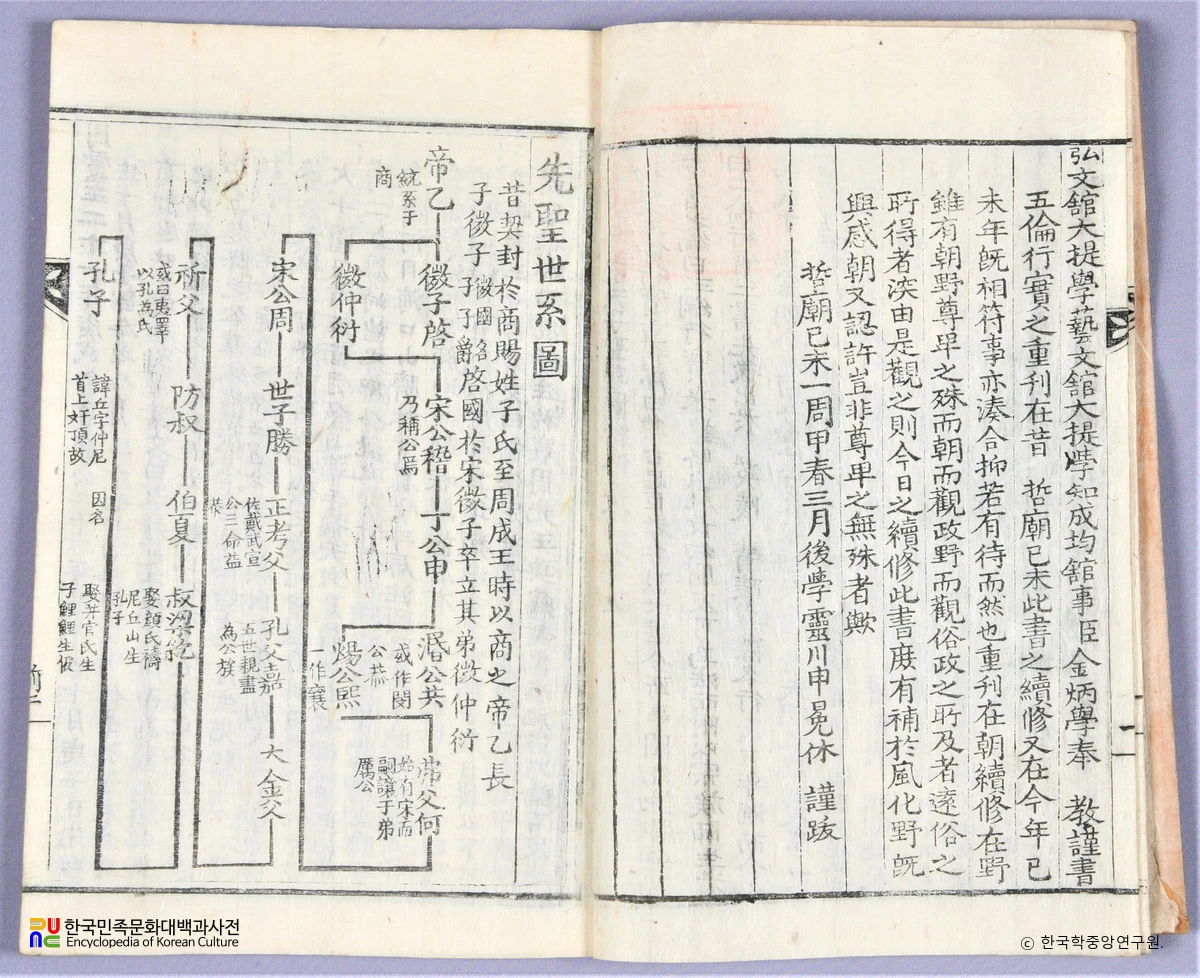 弘文舘大提學藝文舘大提學知成均舘事臣金炳學奉 教謹書
五倫行實之重刊在昔 哲廟己未此書之續修又在今年己
未年旣相符事亦湊合抑若有待而然也重刊在朝續修在野
雖有朝野尊卑之殊而朝而觀政野而觀俗政之所及者遠俗之
所得者深由是觀之則今日之續修此書庶有補於風化野旣
興感朝又認許豈非尊卑之無殊者歟
哲廟己未一周甲春三月後學靈川申冕休 謹跋
先聖世系圖
昔契封於商賜姓子氏至周成王時以商之帝乙長
子微子 微國名 子爵 啓國於宋微子卒立其弟微仲衍
帝乙
統系子
商
微子啓
微仲衍
宋公稽
乃稱公焉
丁公申
湣公共
或作閔
公恭
煬公熙
一作襄
弗父何
始有宋而
嗣讓于弟
厲公
宋公周
世子勝
正考父
佐戴武宣
公三命益
恭
孔父嘉
五世親盡
為公族
木金父
祈父
或曰夷睪
以孔為氏
防叔
伯夏
叔梁紇
娶顔氏禱
尼丘山生
孔子
孔子
諱丘字仲尼
首上圩頂故 因名
娶幵官氏生
子鯉鯉生伋
한국민족문화대백과사전
Encyclopedia of Korean Culture
ⓒ 한국학중앙연구원.